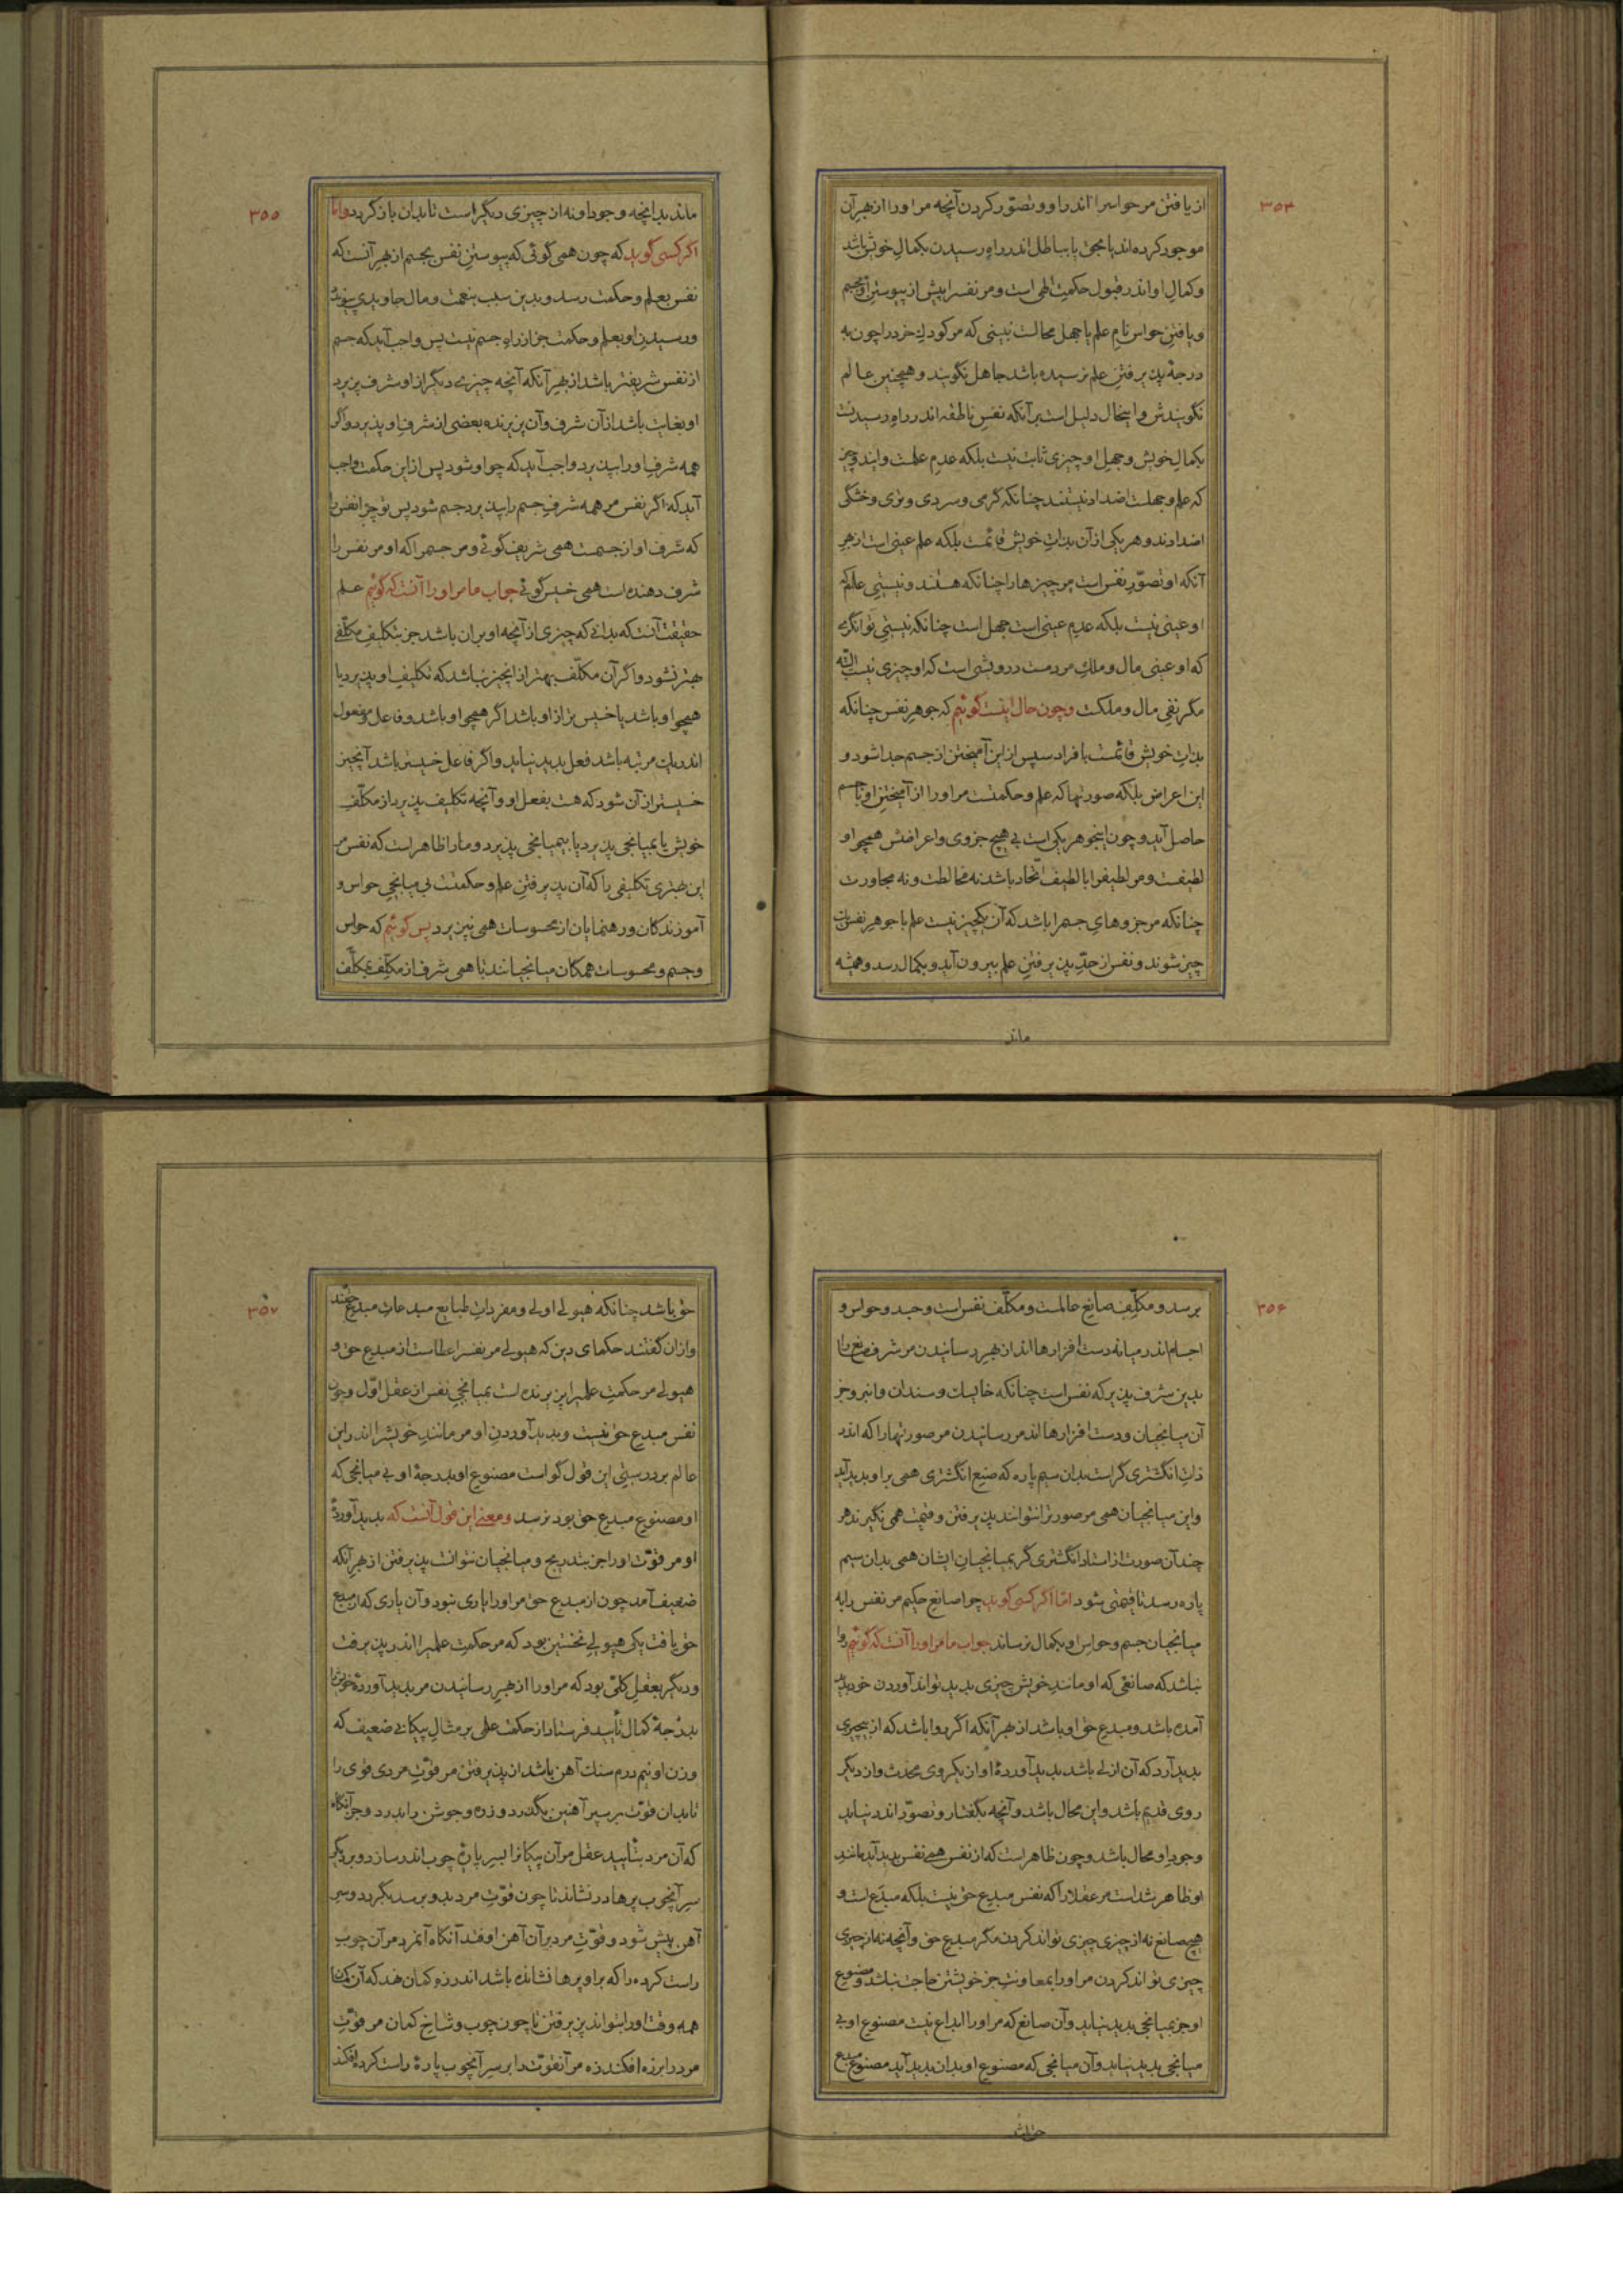 ۳۵۴
از یافتن مر حواس را اندر او و تصوّر کردن آنچه مر او را از بهر آن
موجود کرده‌اند یا مجی یا بباطل اندر راه رسیدن بکمال خویش باشد
و کمال او اندر قبول حکمت الهی است و مر نفس را پیش از پیوستن او بجسم
و یافتن حواس نام علم یا جهل محالست نبینی که مر کودک خرد را چون به
درجهٔ پذیرفتن علم نرسیده باشد جاهل نگویند و همچنین عالم
نگویندش و اینحال دلیل است بر آنکه نفس ناطقه اندر راه رسیدنست
بکمال خویش و جهل او چیزی ثابت نیست بلکه عدم علمست و ایدون نیز
که علم و جهلست اضداد نیستند چنانکه گرمی و سردی و تری و خشگی
اضدادند و هر یکی از آن بذات خویش قائمست بلکه علم عینی است از بهر
آنکه او تصوّر نفس است مر چیزها را چنانکه هستند و نیستی علم که
او عینی نیست بلکه عدم عینی است جهل است چنانکه نیستی توانگری
که او عینی مال و ملک مردمست درویشی است که او چیزی نیست البتّه
مگر نفی مال و ملکت و چون حال اینست گوئیم که جوهر نفس چنانکه
بذات خویش قائمست بافراد سپس از این آمیختن از جسم جدا شود و
این اعراض بلکه صورتها که علم و حکمتست مر او را از آمیختن او با جسم
حاصل آید و چون اینجوهر یکی است بی هیچ جزوی و اعراضش همچو او
لطیفست و مر لطیف را با لطیف اتّحاد باشد نه مخالطت و نه مجاورت
چنانکه مر جزوهای جسم را باشد که آن یکچیز نیست علم با جوهر نفس یک
چیز شوند و نفس از حدّ پذیرفتن علم بیرون آید و بکمال رسد و همیشه
ماند
۳۵۵
ماند بدانچه وجود او نه از چیزی دیگر است تا بدان باز گردد و امّا
اگر کسی گوید که چون همی گوئی که پیوستن نفس بجسم از بهر آنست که
نفس بعلم و حکمت رسد و بدین سبب بنعمت و مال جاویدی پیوندد
و رسیدن او بعلم و حکمت جز از راه جسم نیست پس واجب آید که جسم
از نفس شریفتر باشد از بهر آنکه آنچه چیزی دیگر از او شرف پذیرد
او بغایت باشد از آن شرف و آن پذیرنده بعضی از شرف او پذیرد و اگر
همه شرف او را بپذیرد واجب آید که چو او شود پس از این حکمت واجب
آید که اگر نفس مر همه شرف جسم را بپذیرد جسم شود پس تو چرا نفس را
که شرف او از جسمست همی شریف گوئی و مر جسم را که او مر نفس را
شرف دهنده است همی خسیس گوئی جواب ما مر او را آنست که گوئیم علم
حقیقت آنست که بدانی که چیزی از آنچه او بر آن باشد جز بتکلیف مکلّفی
بهتر نشود و اگر آن مکلّف بهتر از اینچیز نباشد که تکلیف او پذیرد یا
همچو او باشد یا خسیس تر از او باشد اگر همچو او باشد و فاعل و مفعول
اندر یک مرتبه باشد فعل پدید نیاید و اگر فاعل خسیستر باشد آنچیز
خسیستر از آن شود که هست بفعل او و آنچه تکلیف پذیرد از مکلّف
خویش یا بمیانجی پذیرد یا بیمیانجی پذیرد و ما را ظاهر است که نفس مر
این بهتری تکلیفی را که آن پذیرفتن علم و حکمتست بی میانجی حواس و
آموزندگان و رهنمایان از محسوسات همی نپذیرد پس گوئیم که حواس
و جسم و محسوسات همگان میانجیانند تا همی شرف از مکلّف بمکلّف
۳۵۶
برسد و مکلّف صانع عالمست و مکلّف نفس است و جسد و حواس و
اجسام اندر میانه دست افزارها اند از بهر رسانیدن مر شرف صانع را
بدین شرف پذیر که نفس است چنانکه خایسک و سندان و انبر و جز
آن میانجیان و دست افزارها اند مر رسانیدن مر صورتها را که اندر
ذات انگشتری گر است بدان سیم پاره که صنع انگشتری همی بر او پدید آید
و این میانجیان همی مر صورتر‌ا نتوانند پذیرفتن و قیمت همی نگیرند هر
چند آن صورت از استاد انگشتری گر بمیانجیان ایشان همی بدان سیم
پاره رسد تا قیمتی شود امّا اگر کسی گوید چرا صانع حکیم مر نفس را به
میانجیان جسم و حواس او بکمال نرساند جواب ما مر او را آنست که گوئیم روا
نباشد که صانعی که او مانند خویش چیزی پدید تواند آوردن خود پدید
آمده باشد و مبدع حق او باشد از بهر آنکه اگر روا باشد که از بیچیزی
پدید آرد که آن ازلی باشد پدید آوردهٔ او از یکروی محدث و از دیگر
روی قدیم باشد و این محال باشد و آنچه بگفتار و تصوّر اندر نیاید
وجود او محال باشد و چون ظاهر است که از نفس همی نفس پدید آید مانند
او ظاهر شد است مر عقلا را که نفس مبدع حق نیست بلکه مبدَع است و
هیچ صانع نه از چیزی چیزی نتواند کردن مگر مبدع حق و آنچه نه از چیزی
چیزی تواند کردن مر او را بمعاونت جز خویشتن حاجت نباشد و مصنوع
او جز بمیانجی پدید نیاید و آن صانع که مر او را ابداع نیست مصنوع او بی
میانجی پدید نیاید و آن میانجی که مصنوع او بدان پدید آید مصنوع مبدع
حق باشد
۳۵۷
حق باشد چنانکه هیولی اولی و مفردات طبایع مبدعات مبدع حقند
و از آن گفتند حکمای دین که هیولی مر نفس را عطاست از مبدع حق و
هیولی مر حکمت علمی را پذیرنده است بمیانجی نفس از عقل اوّل و چون
نفس مبدع حق نیست و پدید آوردن او مر مانند خویشرا اندر این
عالم بر درستی این قول گواست مصنوع او بدرجهٔ او بی میانجی که
او مصنوع مبدع حق بود نرسد و معنی این قول آنست که پدید آوردهٔ
او مر قوّت او را جز بتدریج و میانجیان نتوانست پذیرفتن از بهر آنکه
ضعیف آمد چون از مبدع حق مر او را یاری نبود و آن یاری که از مبدع
حق یافت یکی هیولی نخستین بود که مر حکمت علمی را اندر پذیرفت
و دیگر بعقل کلّی بود که مر او را از بهر رسانیدن مر پدید آوردهٔ خویش را
بدرجهٔ کمال تأیید فرستاد از حکمت علمی بر مثال پیکانی ضعیف که
وزن او نیم درم سنگ آهن باشد از پذیرفتن مر قوّت مردی قوی را
تا بدان قوّت بر سپر آهنین بگذرد و زره و جوشن را بدرد و جز آنگاه
که آن مرد بتأیید عقل مر آن پیکانرا بسر پارهٔ چوب اندر سازد و بر دیگر
سر آنچوب پرها در نشاند تا چون قوّت مرد بدو برسد بگردد و سر
آهن پیش شود و قوّت مرد بر آن آهن اوفتد آنگاه آنمرد مر آن چوب
راست کرده را که بر او پرها نشانده باشد اندر زه کمان نهد که آن کمان
همه قوّت او را بتواند پذیرفتن تا چون چوب و شاخ کمان مر قوّت
مرد را بر زه افکند زه مر آنقوّت را بر سر آنچوب پارهٔ راست کرده افکند